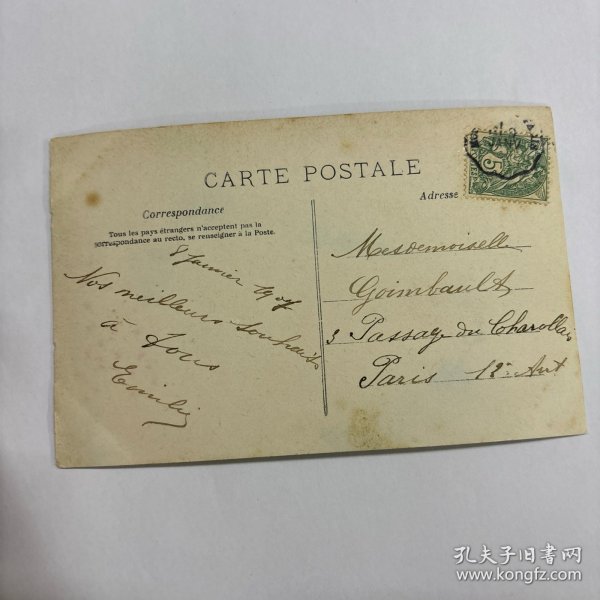 CARTE POSTALE
Correspondance
Tous les pays étrangers n'acceptent pas la
correspondance au recto, se renseigner à la Poste.
Adresse
5
8 Janvier 1907
Nos meilleurs souhaits
à tous
Emilie
Mesdemoiselle
Goimbault
3 Passage du Charollais
Paris 12e Art
孔夫子旧书网
www.kongfz.com